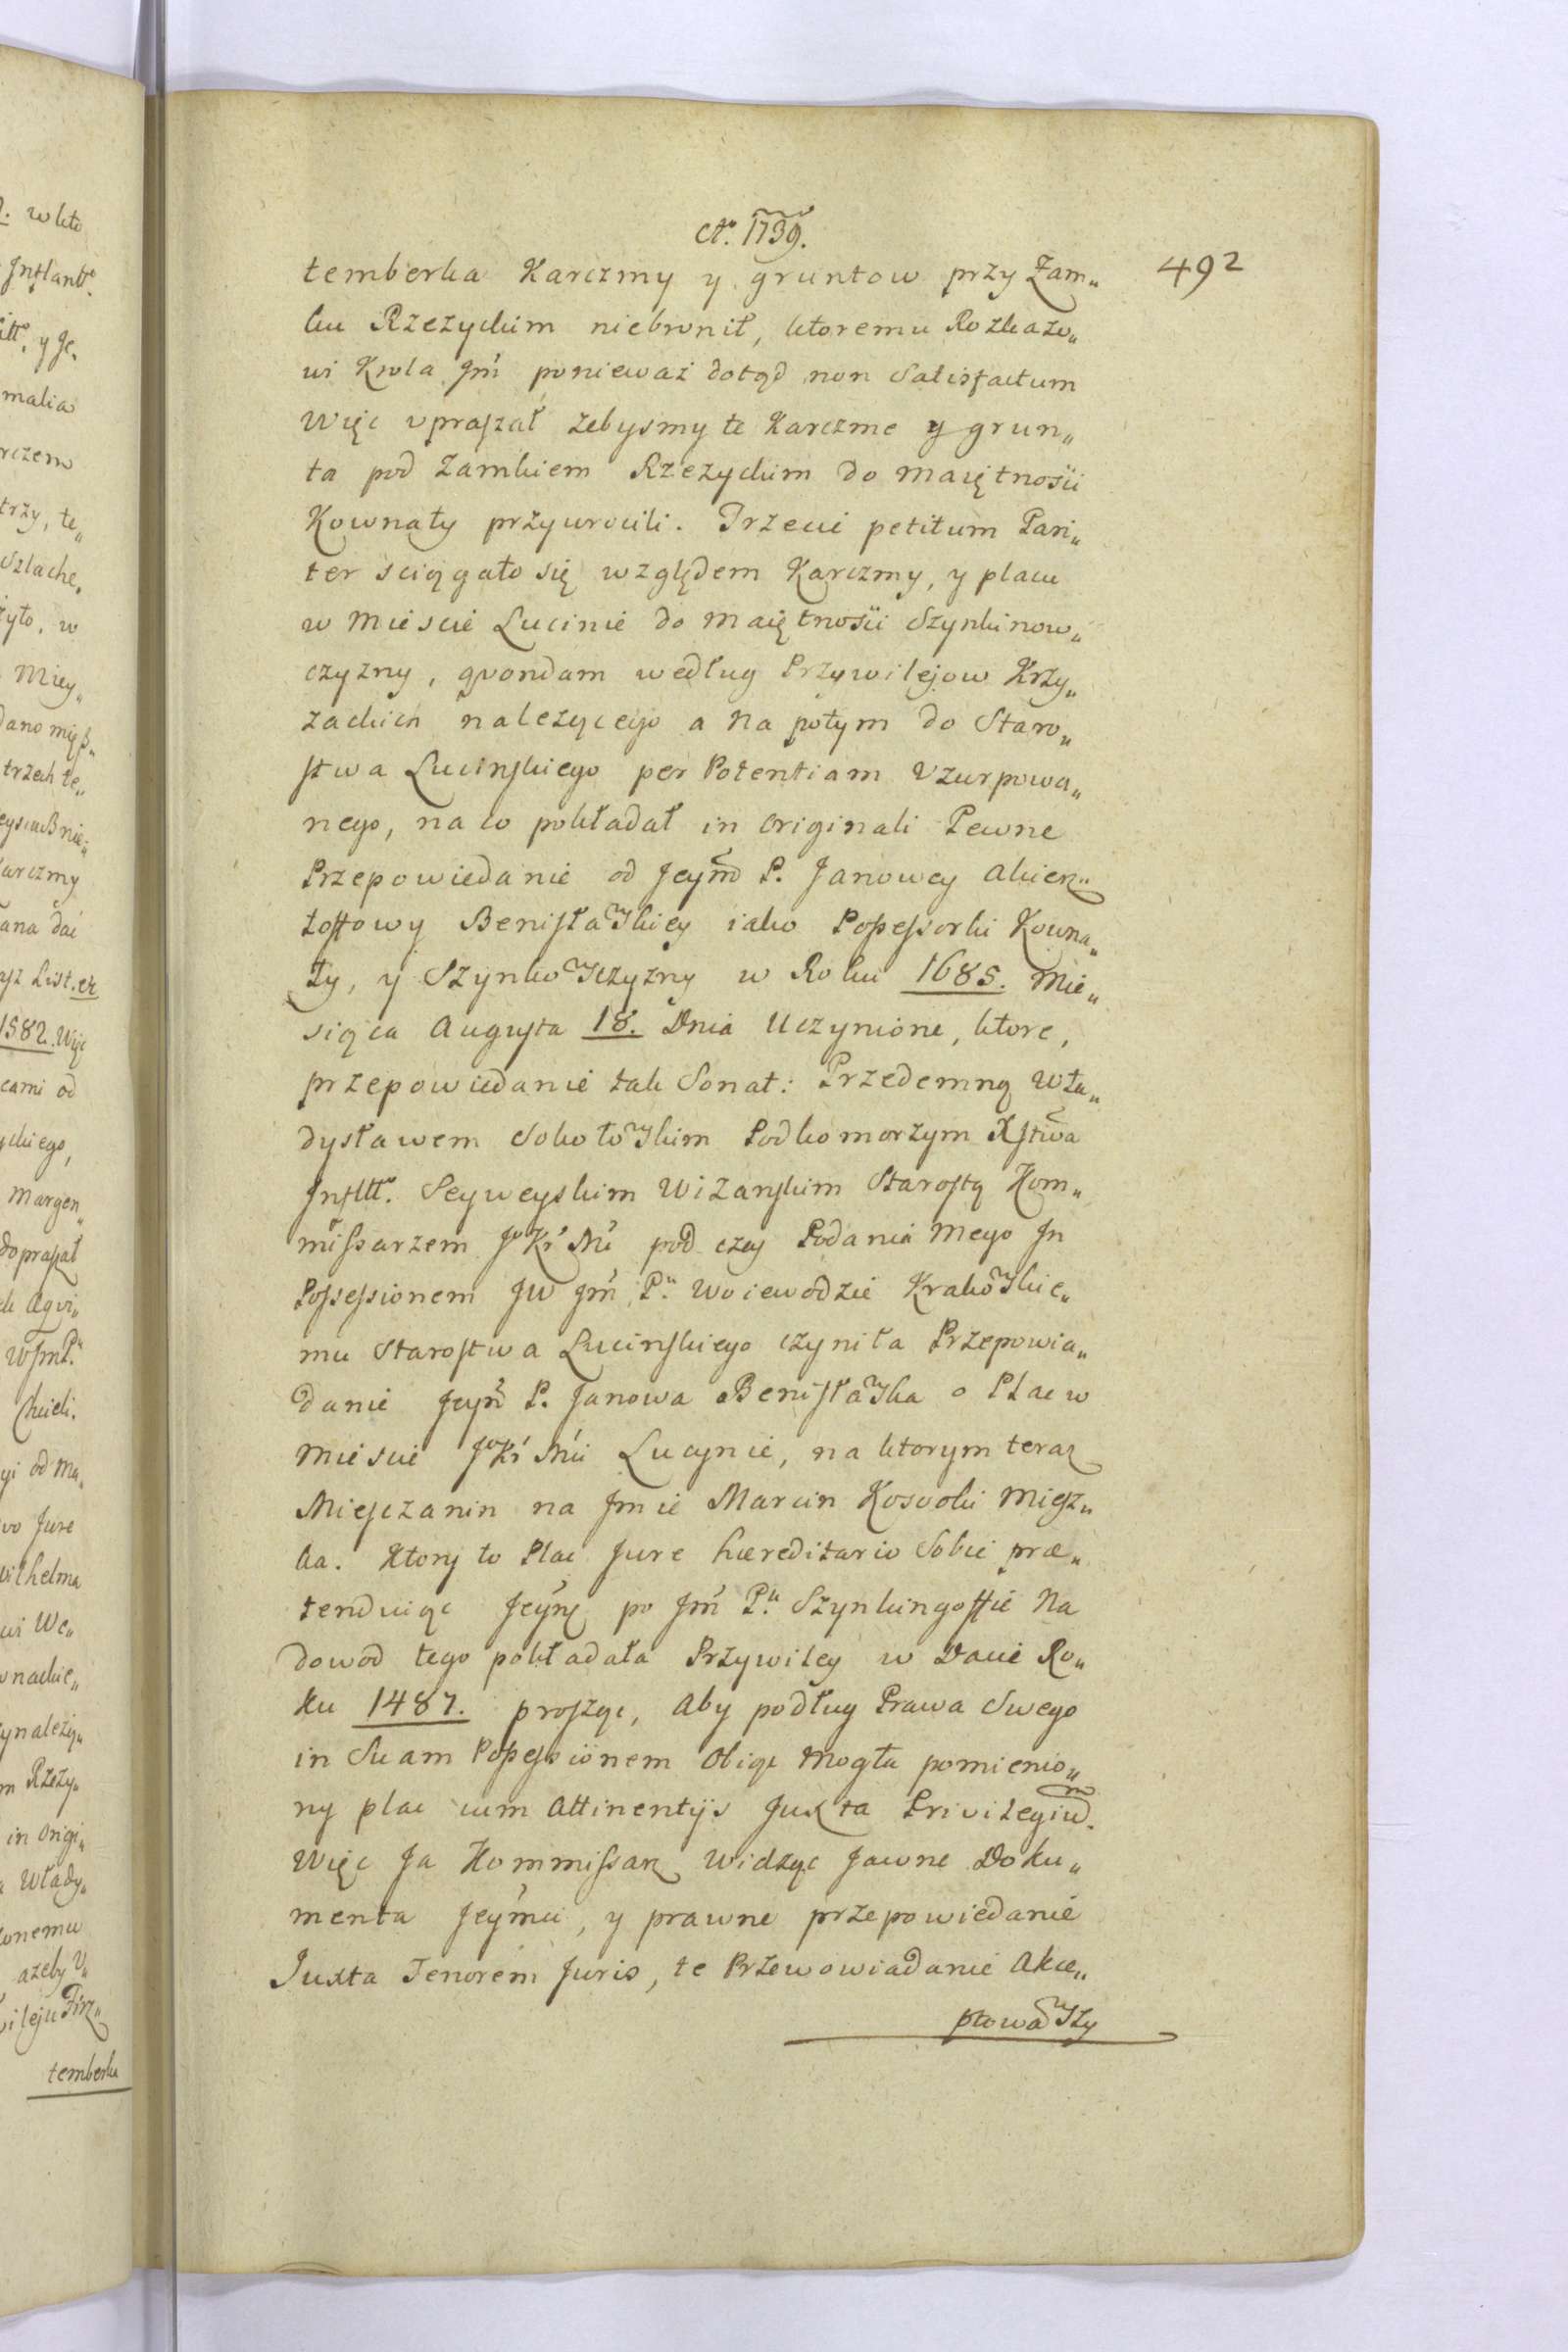 Ao. 1739.
492
temberka Karczmy y gruntow przy Zam„
ku Rzezyckim niebronił, ktoremu Rozkazo„
wi Krola Jm̃ ponieważ dotąd non Satisfactum
Więc vpraszał zebysmy te Karczme y grun„
ta pod Zamkiem Rzezyckim do Maiętnosci
Kownaty przywrocili. Trzecie petitum Pari„
ter sciągało się względem Karczmy, y placu
w Miescie Lucinie do Maiętnosci Szynkinow„
czyzny, qvondam według Przywilejow Krzy„
zackich nalezącego a na potym do Staro„
stwa Lucinskiego per Potentiam Vzurpowa„
nego, na co pokładał in Originali Pewne
Przepowiedanie od Jeym̃ P. Janowey
Benisławskiey iako Possessorki Kowna„
ty, y Szynkowszczyzny w Roku 1685. Mie„
siąca Augusta 18. Dnia Uczynione, ktore,
przepowiedanie tak Sonat: Przedemną Wła„
dysławem Sokołowskim Podkomorzym Xstwa
Inflltt. Seyweyskim Wizanskim Starostą Kom„
missarzem Jo Kr Mci pod czas Podania Mego In
Possessionem JW Jm̃ Pu. Woiewodzie Krakowskie„
mu Starostwa Lucinskiego czyniła Przepowia„
danie Jeym̃ P. Janowa Benisławska o Plac w
Miescie Jo Kr Mci Lucynie, na ktorym teraz
Miesczanin na Jmie Marcin Kosvoki Miesz„
ka. Ktory to Plac Jure hæreditario Sobie præ„
tenduiąc Jeym̃ po Jm̃ Pu. Szynkingoffie Na
dowod tego pokładała Przywiley w Dacie Ro„
ku 1487. prosząc, Aby podług Prawa Swego
in Suam Possessionem Obiąć Mogła pomienio„
ny plac cum Attinentijs Juxta Privilegium.
Więc Ja Kommissarz Widząc Jawne Doku„
menta Jeymci, y prawne przepowiedanie
Juxta Tenorem Juris, te Przewowiadanie Akce„
ptowawszy